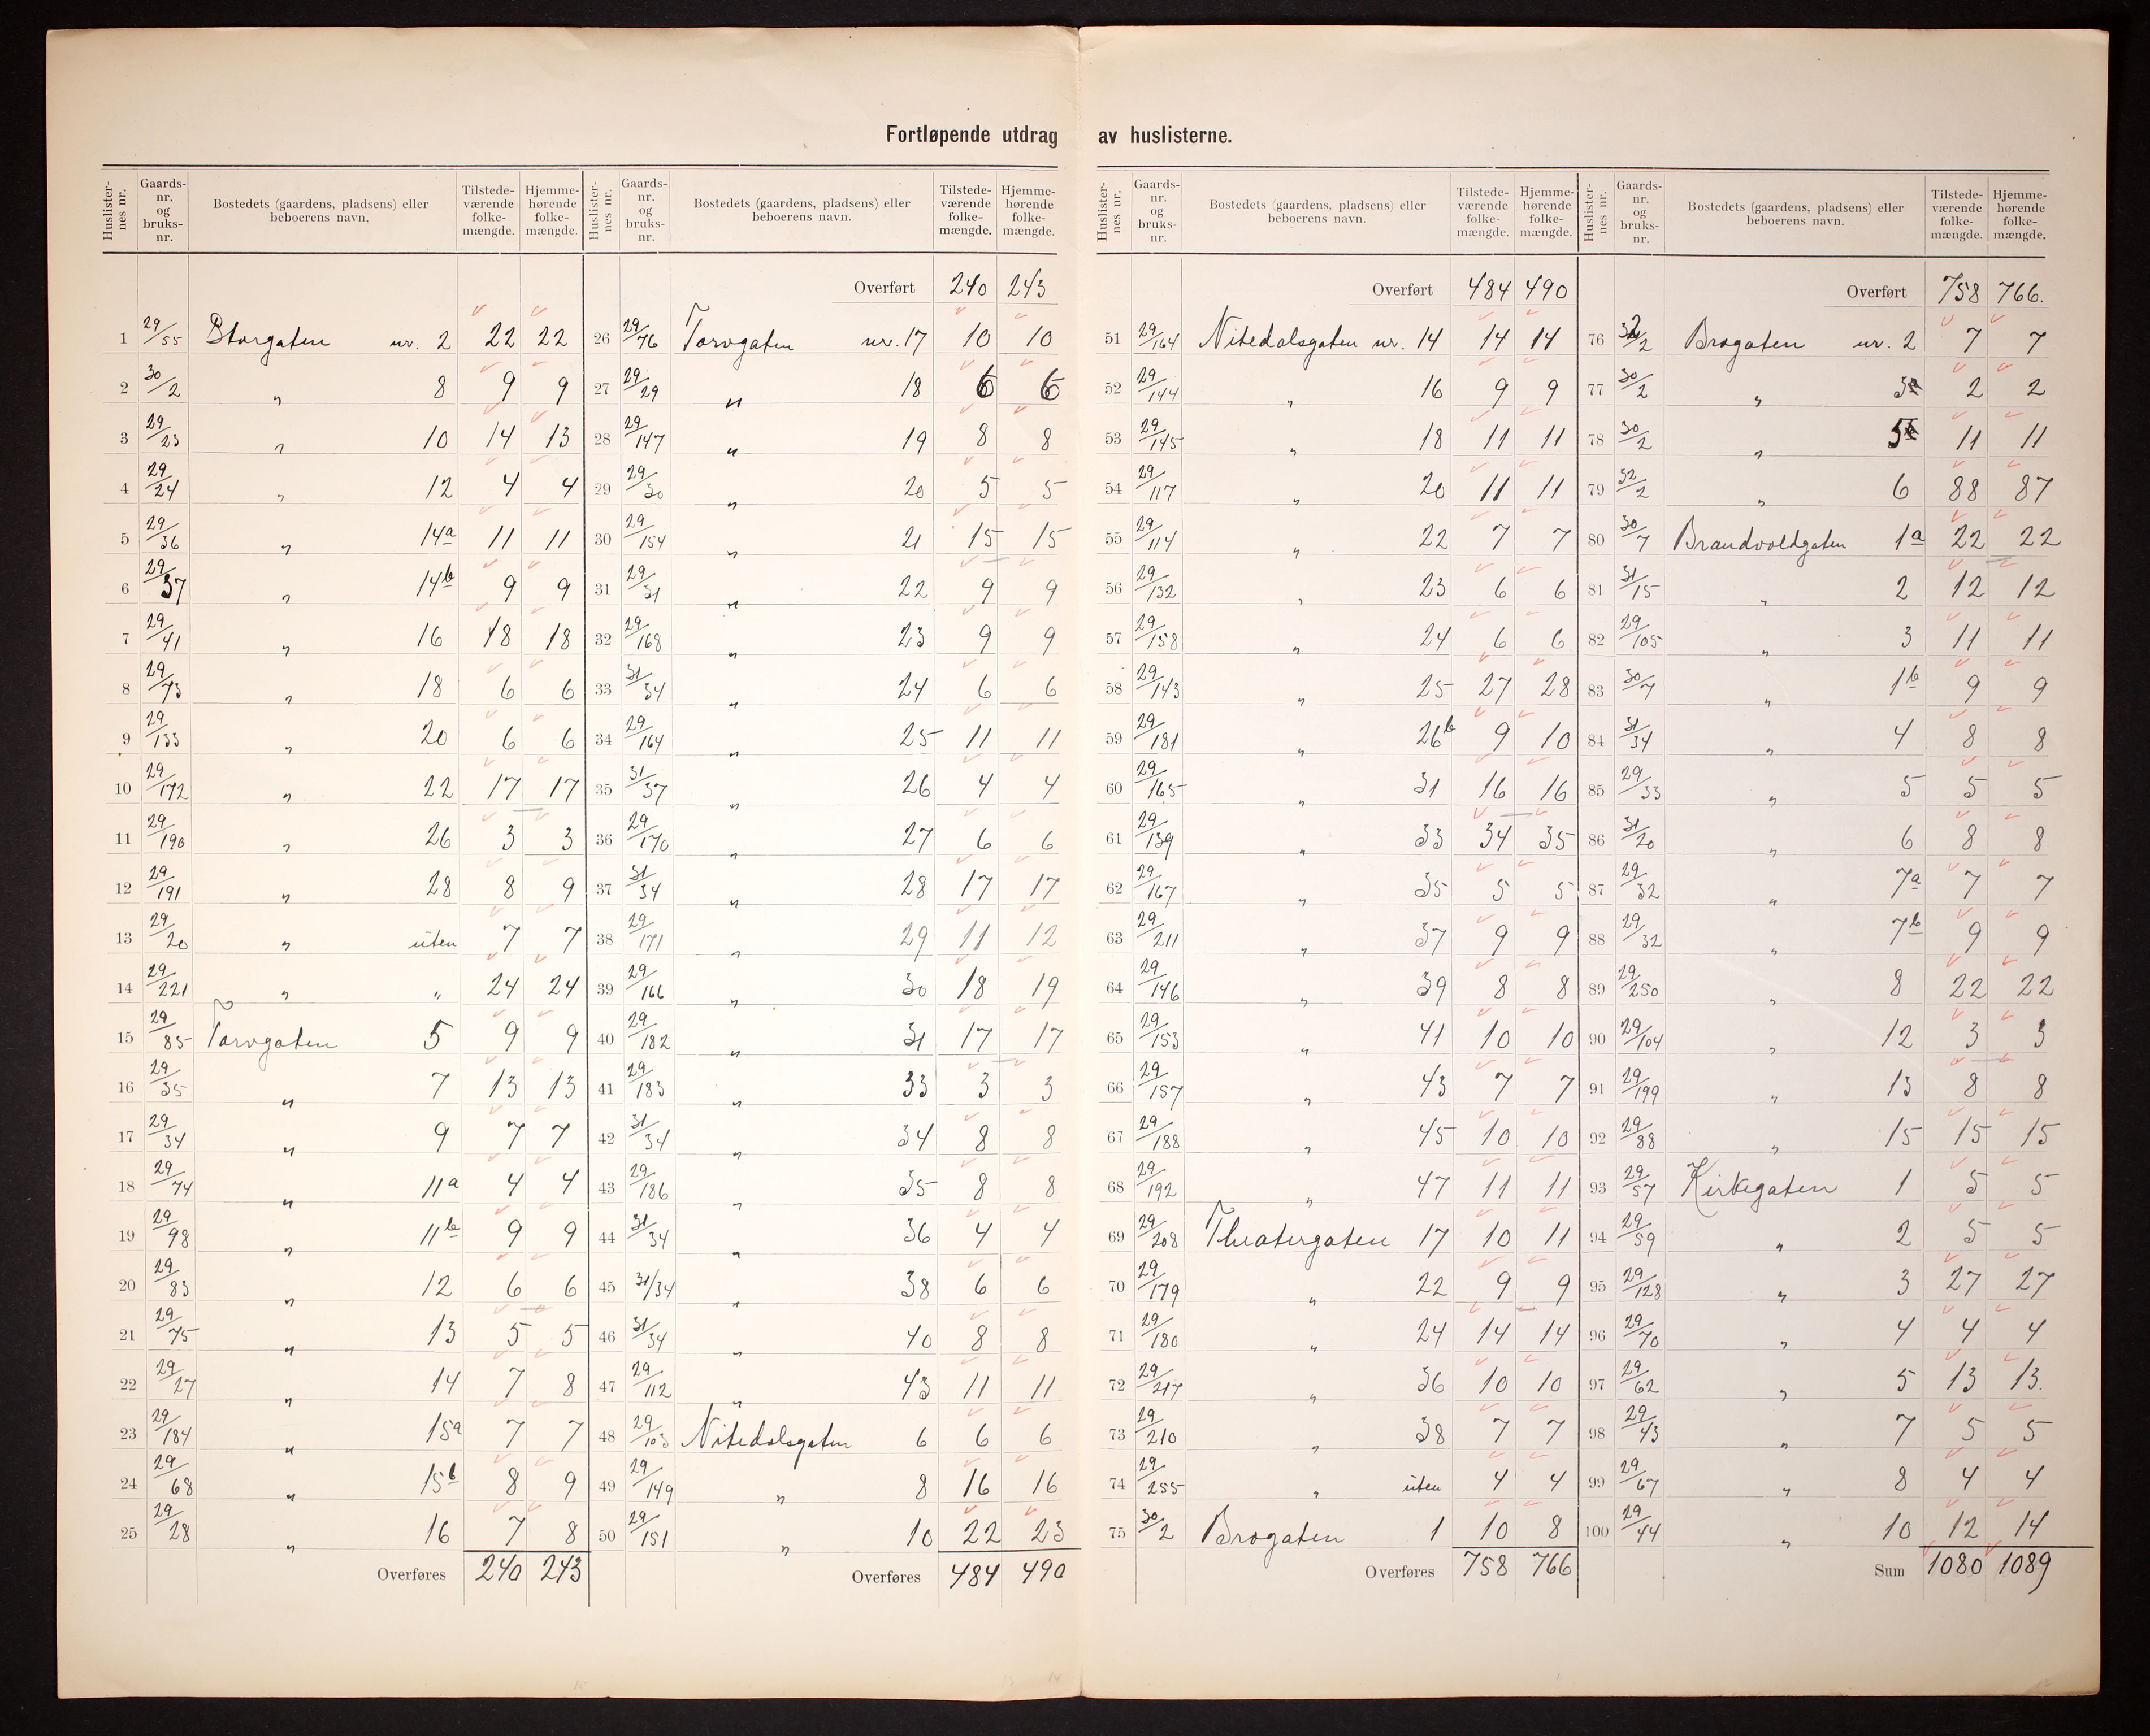 Fortløpende utdrag av huslisterne.
Huslister-nes nr. Gaards-nr. og bruks-nr. Bostedets (gaardens, pladsens) eller beboerens navn. Tilstede-værende folke-mængde. Hjemme-hørende folke-mængde.
1 29/55 Storgaten nr. 2 22 22
2 30/2 „ 8 9 9
3 29/23 „ 10 14 13
4 29/24 „ 12 4 4
5 29/36 „ 14a 11 11
6 29/37 „ 14b 9 9
7 29/41 „ 16 18 18
8 29/73 „ 18 6 6
9 29/133 „ 20 6 6
10 29/172 „ 22 17 17
11 29/190 „ 26 3 3
12 29/191 „ 28 8 9
13 29/20 „ uten 7 7
14 29/221 „ „ 24 24
15 29/85 Torvgaten 5 9 9
16 29/35 „ 7 13 13
17 29/34 „ 9 7 7
18 29/74 „ 11a 4 4
19 29/98 „ 11b 9 9
20 29/83 „ 12 6 6
21 29/75 „ 13 5 5
22 29/27 „ 14 7 8
23 29/184 „ 15a 7 7
24 29/68 „ 15b 8 9
25 29/28 „ 16 7 8
Overføres 240 243
Huslister-nes nr. Gaards-nr. og bruks-nr. Bostedets (gaardens, pladsens) eller beboerens navn. Tilstede-værende folke-mængde. Hjemme-hørende folke-mængde.
Overført 240 243
26 29/76 Torvgaten nr. 17 10 10
27 29/29 „ 18 6 6
28 29/147 „ 19 8 8
29 29/30 „ 20 5 5
30 29/154 „ 21 15 15
31 29/31 „ 22 9 9
32 29/168 „ 23 9 9
33 31/34 „ 24 6 6
34 29/164 „ 25 11 11
35 31/37 „ 26 4 4
36 29/170 „ 27 6 6
37 31/34 „ 28 17 17
38 29/171 „ 29 11 12
39 29/166 „ 30 18 19
40 29/182 „ 31 17 17
41 29/183 „ 33 3 3
42 31/34 „ 34 8 8
43 29/186 „ 35 8 8
44 31/34 „ 36 4 4
45 31/34 „ 38 6 6
46 31/34 „ 40 8 8
47 29/112 „ 43 11 11
48 29/103 Nitedalsgaten 6 6 6
49 29/149 „ 8 16 16
50 29/151 „ 10 22 23
Overføres 484 490
Huslister-nes nr. Gaards-nr. og bruks-nr. Bostedets (gaardens, pladsens) eller beboerens navn. Tilstede-værende folke-mængde. Hjemme-hørende folke-mængde.
Overført 484 490
51 29/164 Nitedalsgaten nr. 14 14 14
52 29/144 „ 16 9 9
53 29/145 „ 18 11 11
54 29/117 „ 20 11 11
55 29/114 „ 22 7 7
56 29/132 „ 23 6 6
57 29/158 „ 24 6 6
58 29/143 „ 25 27 28
59 29/181 „ 26b 9 10
60 29/165 „ 31 16 16
61 29/139 „ 33 34 35
62 29/167 „ 35 5 5
63 29/211 „ 37 9 9
64 29/146 „ 39 8 8
65 29/153 „ 41 10 10
66 29/157 „ 43 7 7
67 29/188 „ 45 10 10
68 29/192 „ 47 11 11
69 29/208 Theatergaten 17 10 11
70 29/179 „ 22 9 9
71 29/180 „ 24 14 14
72 29/217 „ 36 10 10
73 29/210 „ 38 7 7
74 29/255 „ uten 4 4
75 30/2 Brogaten 1 10 8
Overføres 758 766
Huslister-nes nr. Gaards-nr. og bruks-nr. Bostedets (gaardens, pladsens) eller beboerens navn. Tilstede-værende folke-mængde. Hjemme-hørende folke-mængde.
Overført 758 766.
76 32/2 Brogaten nr. 2 7 7
77 30/2 „ 3 2 2
78 30/2 „ 5 11 11
79 32/2 „ 6 88 87
80 30/7 Brandvoldgaten 1a 22 22
81 31/15 „ 2 12 12
82 29/105 „ 3 11 11
83 30/7 „ 1b 9 9
84 31/34 „ 4 8 8
85 29/33 „ 5 5 5
86 31/20 „ 6 8 8
87 29/32 „ 7a 7 7
88 29/32 „ 7b 9 9
89 29/250 „ 8 22 22
90 29/104 „ 12 3 3
91 29/199 „ 13 8 8
92 29/88 „ 15 15 15
93 29/57 Kirkegaten 1 5 5
94 29/59 „ 2 5 5
95 29/128 „ 3 27 27
96 29/70 „ 4 4 4
97 29/62 „ 5 13 13.
98 29/43 „ 7 5 5
99 29/67 „ 8 4 4
100 29/44 „ 10 12 14
Sum 1080 1089